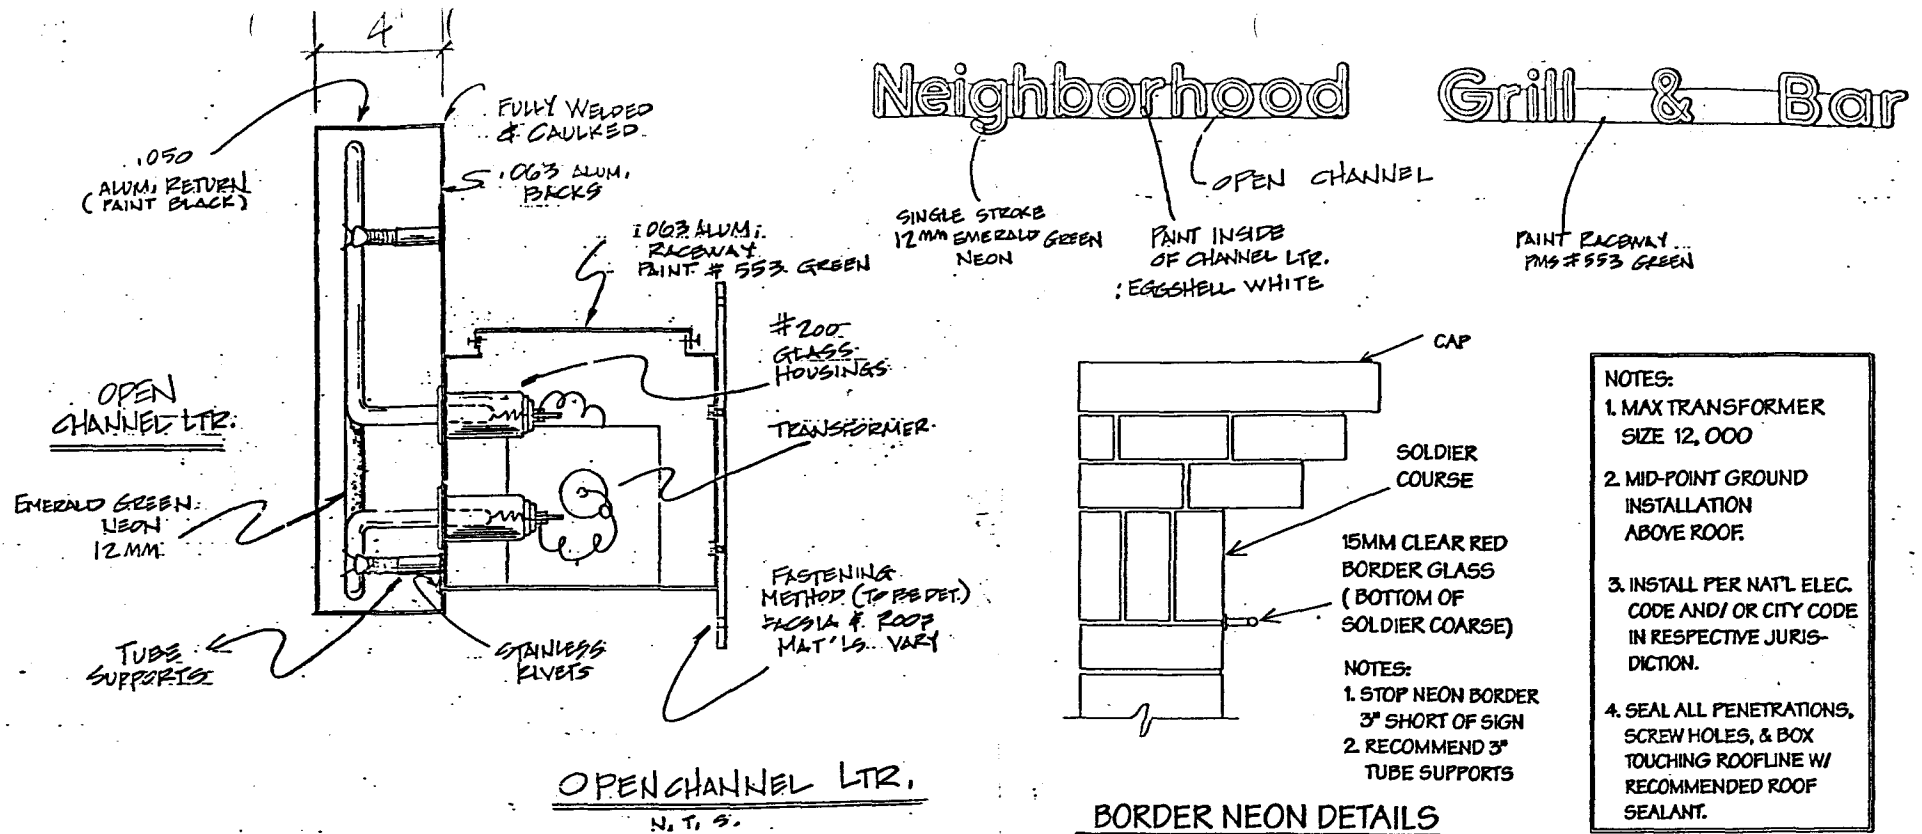 4"
.050
ALUM. RETURN
(PAINT BLACK)
FULLY WELDED
& CAULKED
.063 ALUM.
BACKS
.063 ALUM.
RACEWAY
PAINT # 553 GREEN
#200
GLASS
HOUSINGS
TRANSFORMER
OPEN
CHANNEL LTR.
EMERALD GREEN
NEON
12MM
TUBE
SUPPORTS
STAINLESS
RIVETS
FASTENING
METHOD (TO BE DET.)
FACSIA & ROOF
MAT'LS VARY
OPEN CHANNEL LTR.
N.T.S.
Neighborhood
Grill & Bar
SINGLE STROKE
12MM EMERALD GREEN
NEON
PAINT INSIDE
OF CHANNEL LTR.
: EGGSHELL WHITE
OPEN CHANNEL
PAINT RACEWAY
PMS #553 GREEN
CAP
SOLDIER
COURSE
15MM CLEAR RED
BORDER GLASS
( BOTTOM OF
SOLDIER COARSE)
NOTES:
1. STOP NEON BORDER
3" SHORT OF SIGN
2. RECOMMEND 3"
TUBE SUPPORTS
BORDER NEON DETAILS
NOTES:
1. MAX TRANSFORMER
SIZE 12,000
2. MID-POINT GROUND
INSTALLATION
ABOVE ROOF.
3. INSTALL PER NAT'L ELEC.
CODE AND/ OR CITY CODE
IN RESPECTIVE JURIS-
DICTION.
4. SEAL ALL PENETRATIONS,
SCREW HOLES, & BOX
TOUCHING ROOFLINE W/
RECOMMENDED ROOF
SEALANT.